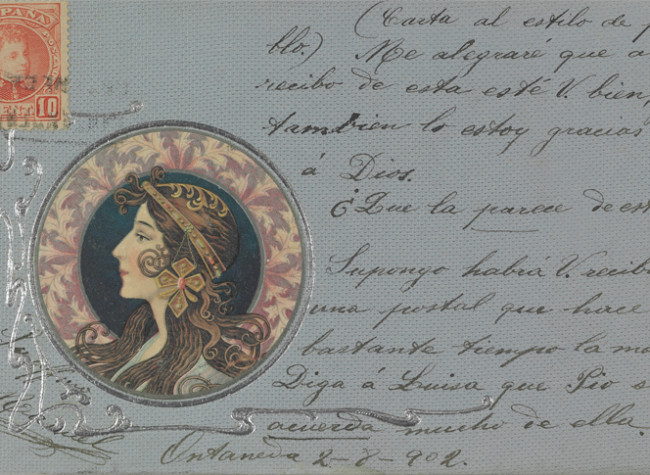 ESPAÑA
10
(Carta al estilo de p
blo.) Me alegraré que a
recibo de esta esté V. bien,
tambien lo estoy gracias
á Dios.
¿Que la parece de est
Supongo habrá V. recibi
una postal que hace
bastante tiempo la ma
Diga á Luisa que Pio s
acuerda mucho de ella.
Ontaneda 2-8-902.